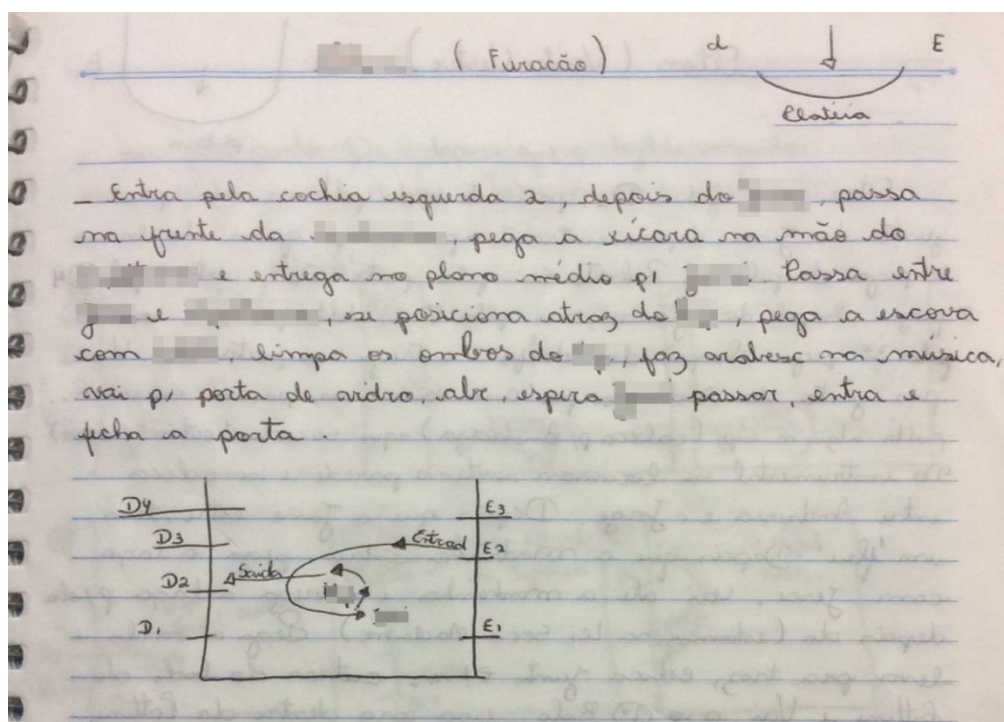 (Furacão) d E
Plateia
_ Entra pela cochia esquerda 2, depois do , passa
na frente da , pega a xícara na mão do
e entrega no plano médio p/ . Passa entre
e , se posiciona atraz do , pega a escova
com , limpa os ombros do , faz arabesc na música,
vai p/ porta de vidro, abr, espera passar, entra e
fecha a porta.
D4 E3
D3 Entrad E2
D2 Saida
D1 E1